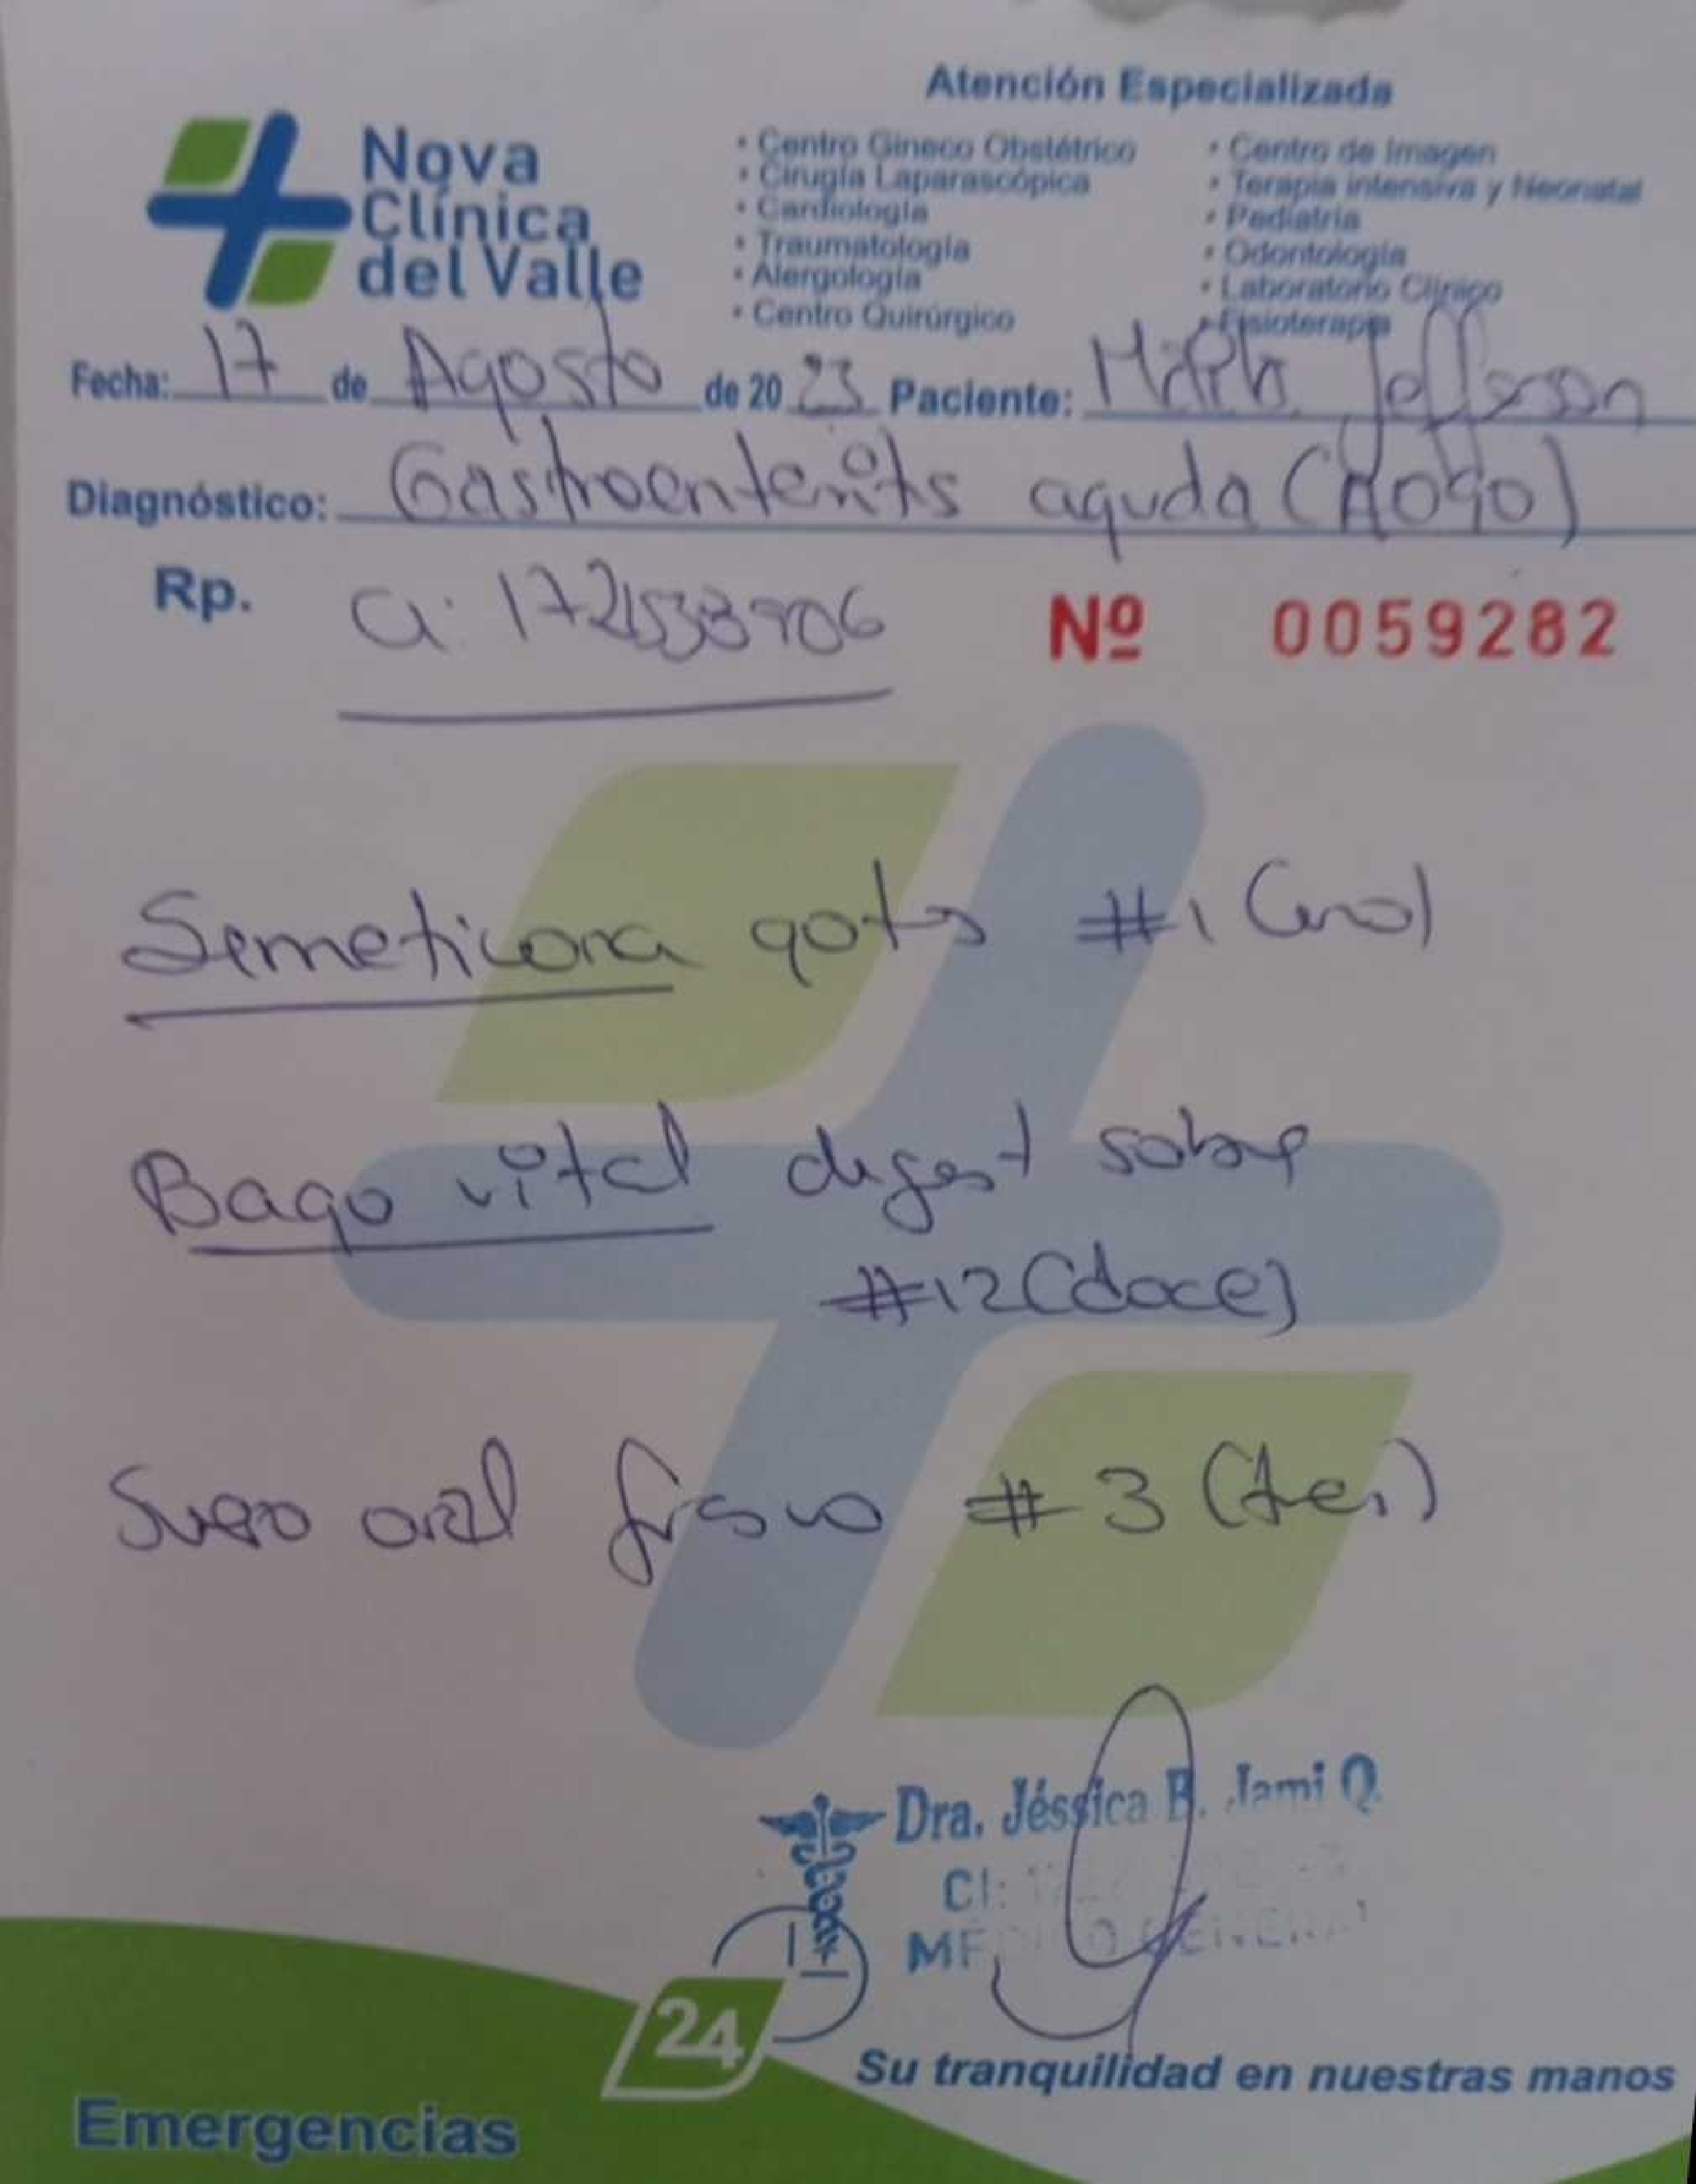 Atención Especializada
Nova
Clínica
del Valle
• Centro Gineco Obstétrico
• Cirugía Laparascópica
• Cardiología
• Traumatología
• Alergología
• Centro Quirúrgico
• Centro de Imagen
• Terapia intensiva y Neonatal
• Pediatría
• Odontología
• Laboratorio Clínico
• Fisioterapia
Fecha: 17 de Agosto de 20 23 Paciente: Jefferson
Diagnóstico: Gastroenteritis aguda (A090)
Rp. CI:
Nº 0059282
Simeticona gotas #1 (uno)
Bago vital digest sobre
#12 (doce)
Suero oral frasco #3 (tres)
Dra. Jéssica Jami Q.
CI:
24
Su tranquilidad en nuestras manos
Emergencias